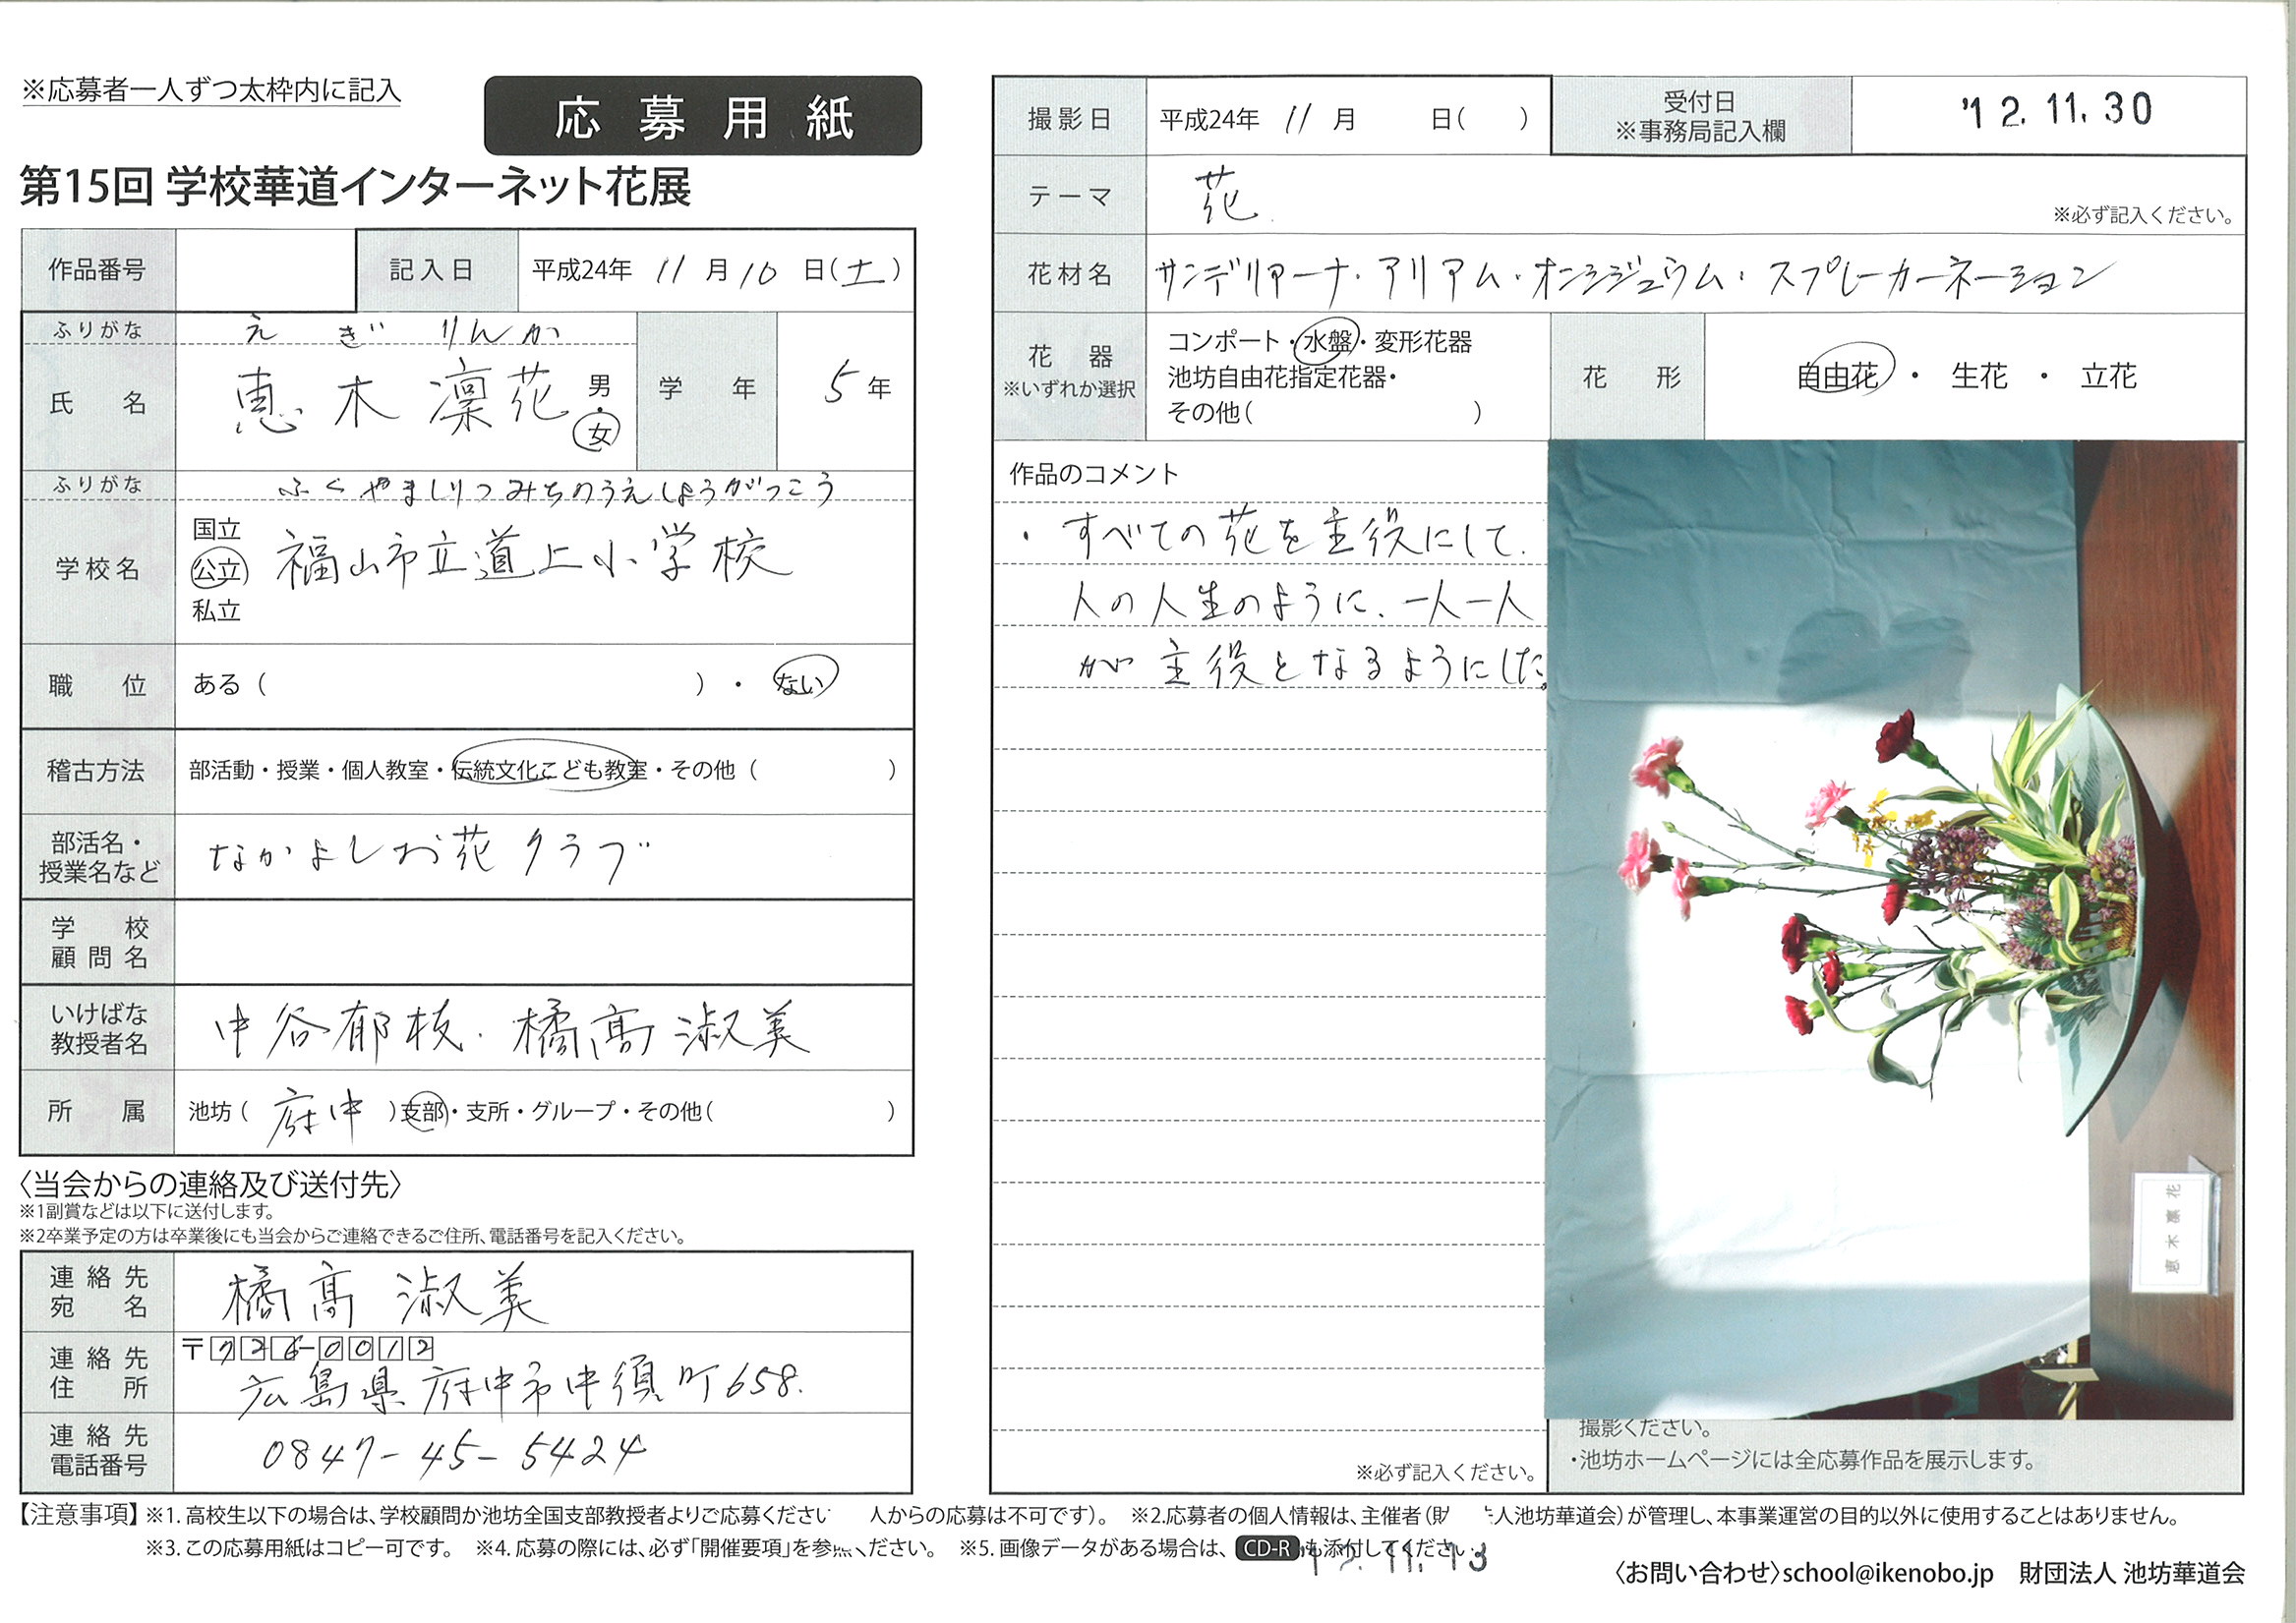 ※応募者一人ずつ太枠内に記入
応募用紙
第15回 学校華道インターネット花展
作品番号
記入日 平成24年 11月10日(土)
ふりがな えぎりんか
氏名 恵木凛花 男・女
学年 5年
ふりがな ふくやましりつみちのうえしょうがっこう
学校名 国立 公立 私立 福山市立道上小学校
職位 ある( )・ない
稽古方法 部活動・授業・個人教室・伝統文化こども教室・その他( )
部活名・授業名など なかよしお花クラブ
学校顧問名
いけばな教授者名 中谷郁枝・橘高淑美
所属 池坊(府中)支部・支所・グループ・その他( )
〈当会からの連絡及び送付先〉
※1副賞などは以下に送付します。
※2卒業予定の方は卒業後にも当会からご連絡できるご住所、電話番号を記入ください。
連絡先宛名 橘髙淑美
連絡先住所 〒726-0012
広島県府中市中須町658.
連絡先電話番号 0847-45-5424
撮影日 平成24年 11月 日( )
受付日 ※事務局記入欄 '12.11.30
テーマ 花
※必ず記入ください。
花材名 サンデリアーナ・アリアム・オンシジュウム・スプレーカーネーション
花器 ※いずれか選択
コンポート・水盤・変形花器
池坊自由花指定花器・
その他( )
花形 自由花・生花・立花
作品のコメント
・すべての花を主役にして、
人の人生のように、一人一人
が主役となるようにした。
※必ず記入ください。
恵木凛花
撮影ください。
・池坊ホームページには全応募作品を展示します。
【注意事項】※1. 高校生以下の場合は、学校顧問か池坊全国支部教授者よりご応募ください 人からの応募は不可です)。 ※2.応募者の個人情報は、主催者(財 人池坊華道会)が管理し、本事業運営の目的以外に使用することはありません。
※3. この応募用紙はコピー可です。 ※4. 応募の際には、必ず「開催要項」を参照ください。 ※5. 画像データがある場合は、CD-Rも添付してください。
12.11.13
〈お問い合わせ〉school@ikenobo.jp 財団法人 池坊華道会